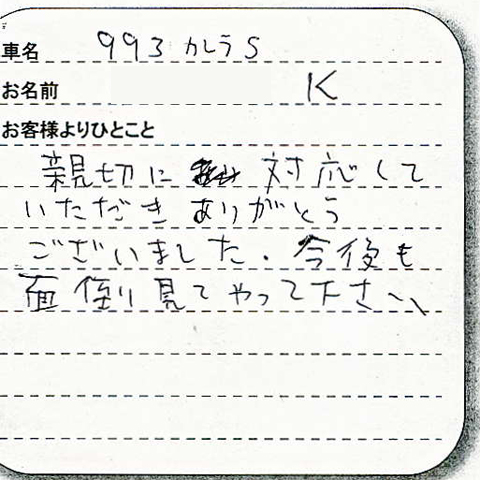 車名 993 カレラS
お名前 K
お客様よりひとこと
親切に 対応して
いただき ありがとう
ございました. 今後も
面倒見てやって下さい、